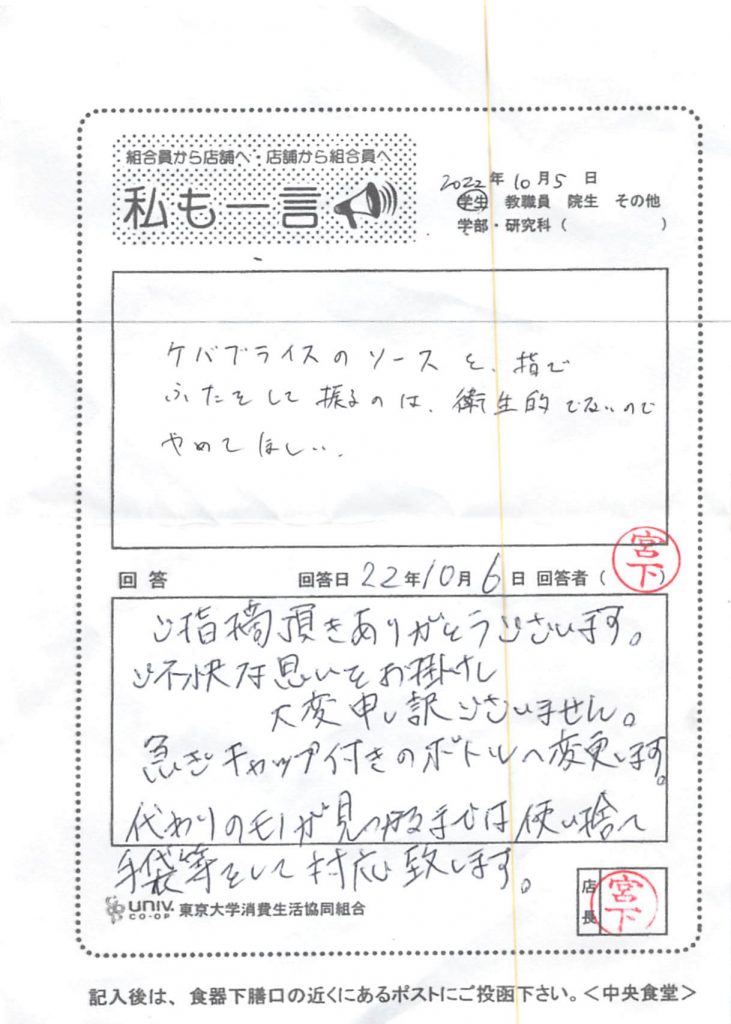 組合員から店舗へ・店舗から組合員へ
私も一言
2022年10月5日
学生 教職員 院生 その他
学部・研究科（ ）
ケバブライスのソースを、指で
ふたをして振るのは、衛生的でないので
やめてほしい。
回答 回答日 22年10月6日 回答者（宮下）
ご指摘頂きありがとうございます。
ご不快な思いをお掛けし
大変申し訳ございません。
急ぎキャップ付きのボトルへ変更します。
代わりのモノが見つかるまでは使い捨て
手袋等をして対応致します。
UNIV. CO-OP 東京大学消費生活協同組合
店長 宮下
記入後は、食器下膳口の近くにあるポストにご投函下さい。＜中央食堂＞